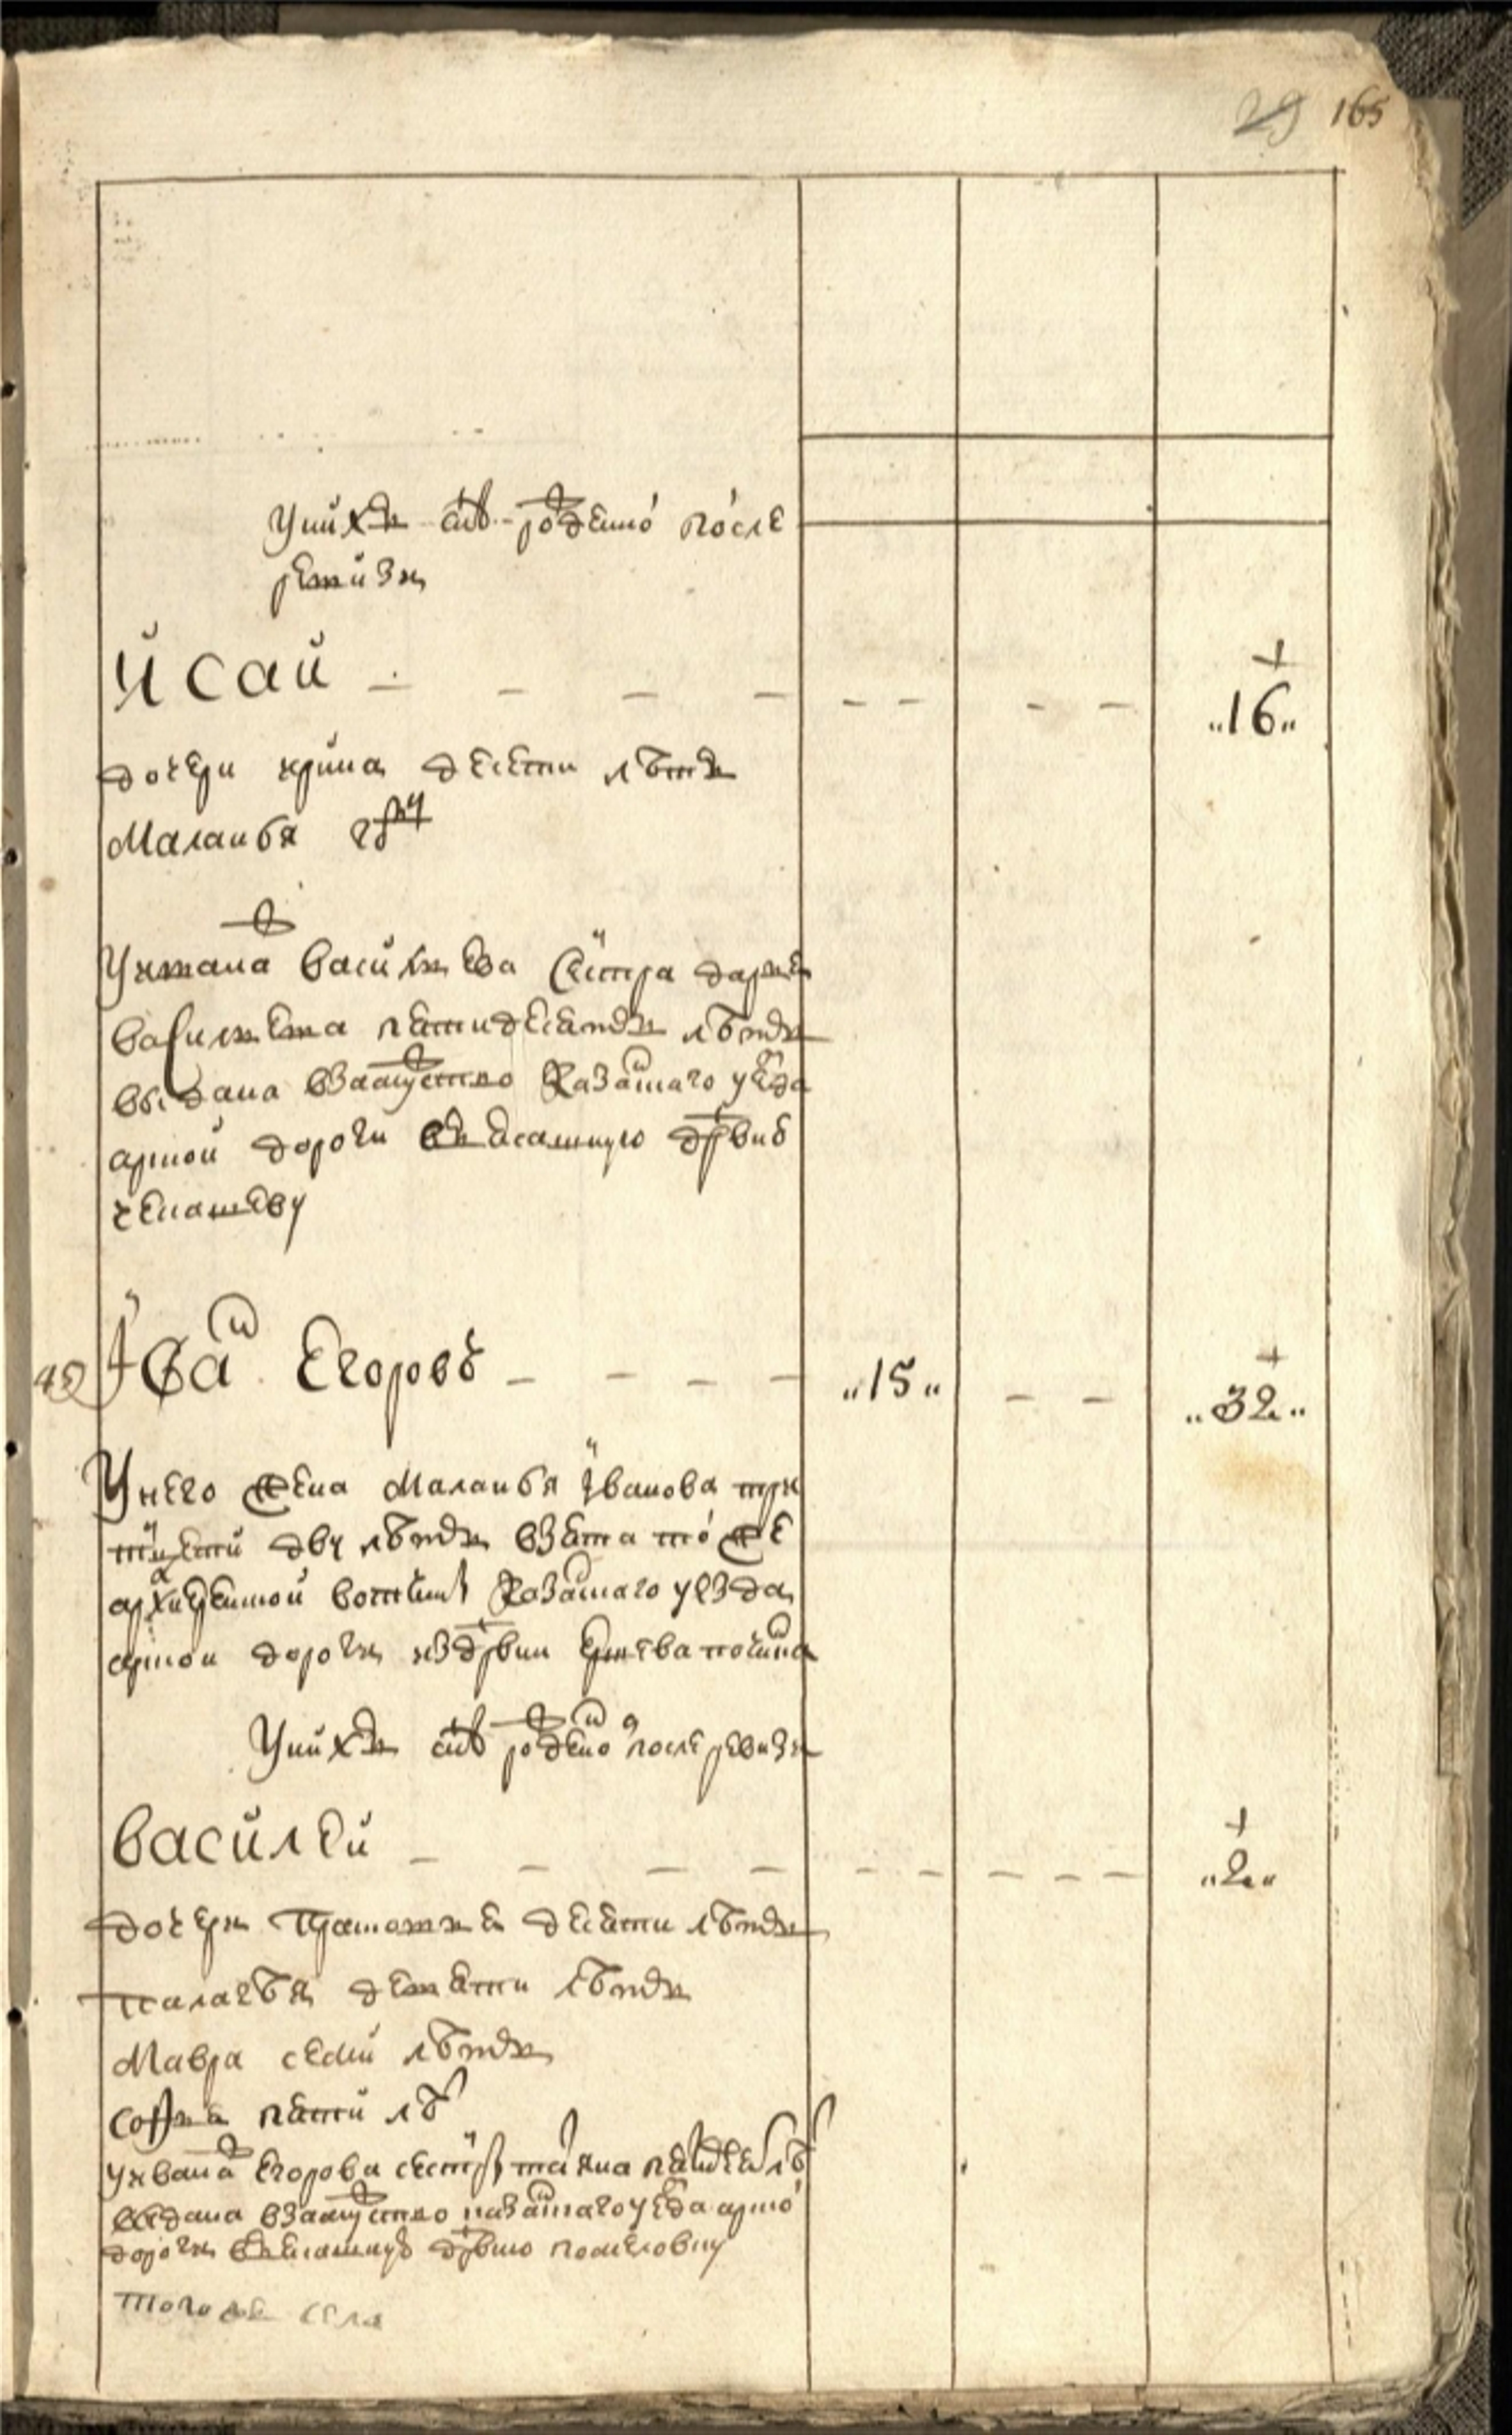 29 165
У них сын рожденой после
ревизи
Исай - - - - - - - - „16„
дочери ирина десети летъ
Маланья году
У ивана васильева сестра дарья
васильева петидесятъ летъ
выдана взамужство Казанского уезда
арской дороги въ ясашную деревню
чепашеву
49 Иванъ Егоровъ - - - - „15„ - - „32„
У него жена Маланья Иванова три
тцети дву летъ взята то же
архиерейской вотчины Казанского уезда
арской дороги из деревни починка
У них сын рожденой после ревизи
василей - - - - - - - - - „2„
дочери десяти летъ
палагея девяти летъ
Мавра семи летъ
софья пяти летъ
У ивана Егорова сестра татьяна летъ
выдана взамужство казанского уезда арской
дороги въ ясашную деревню
того же села